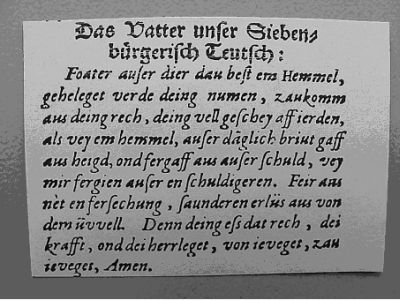 Das Vatter unser Sieben⸗
bürgerisch Teutsch:
Foater auſer dier dau beſt em Hemmel,
geheleget verde deing numen, zaukomm
aus deing rech, deing vell geſchey aff ierden,
als vey em hemmel, auſer däglich briut gaff
aus heigd, ond fergaff aus auſer ſchuld, vey
mir fergien auſer en ſchuldigeren. Feir aus
nèt en ferſechung, ſaunderen erlüs aus von
dem üvvell. Denn deing eſs dat rech, dei
krafft, ond dei herrleget, von ieveget, zau
ieveget, Amen.